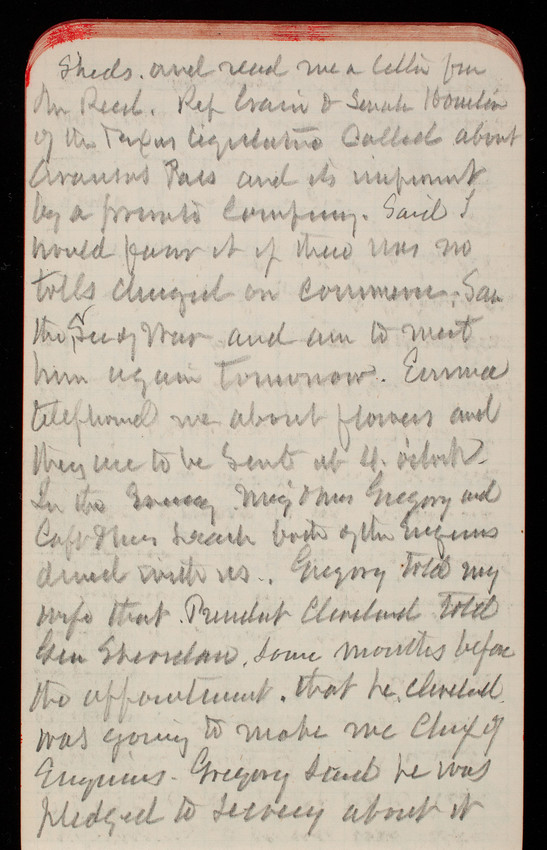 Sheds. and read me a letter from
Mr Reed. Rep Crain & Senator Houston
of the Texas legislature called about
Aransas Pass and its improvmt
by a private Company. Said I
would favor it if there was no
tolls charged on commerce. Saw
the Secy War and am to meet
him again tomorrow. Emma
telephoned me about flowers and
they are to be sent at 4. oclock.
In the Evening Maj & Mrs Gregory and
Capt & Mrs both of the Engineers
dined with us. Gregory told my
wife that President Cleveland told
Gen Sheridan, some months before
the appointment. that he, Cleveland
was going to make me Chief of
Engineers. Gregory said he was
pledged to secrecy about it